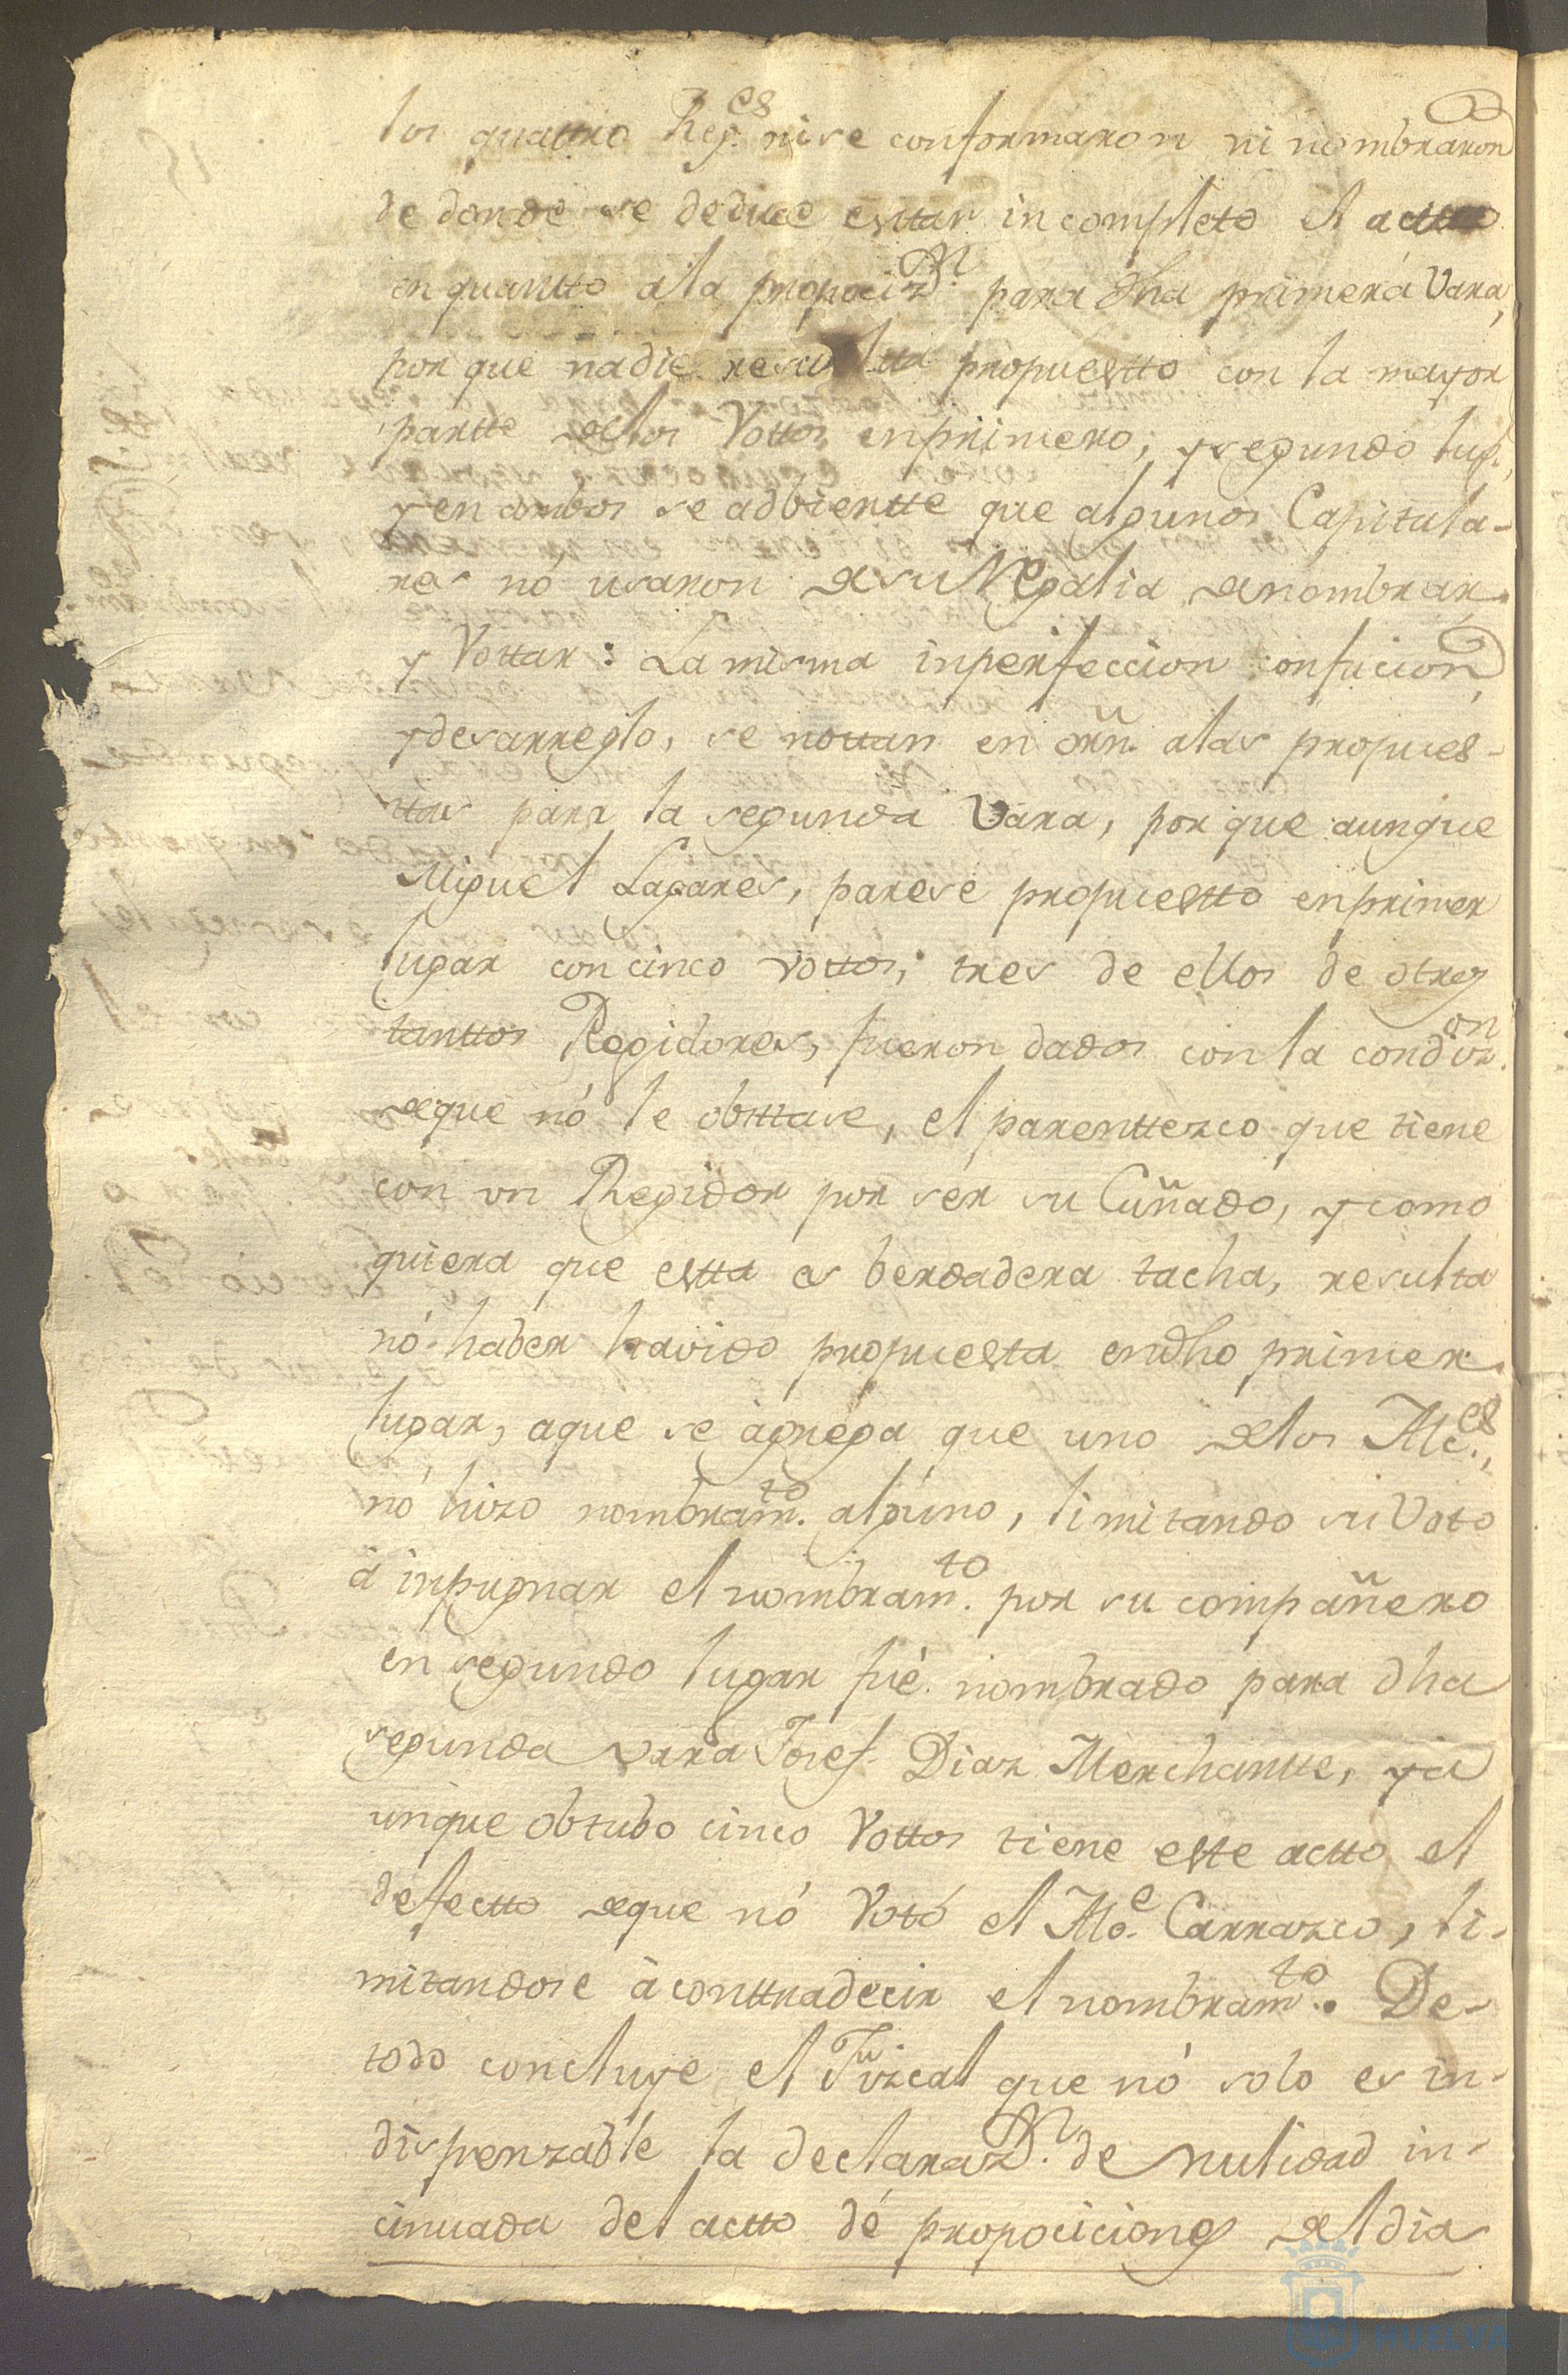 los quattro Reg.es ni se conformaron ni nombraron
de donde se deduce esttar incompleto el actto
en quantto a la propociz.on para dha primera Vara,
por que nadie resultta propuestto con la mayor
partte delos Vottos enprimero, y segundo lug.,
y en ambos se adbientte que algunos Capitula-
res nó usaron desu Regalia denombrar
y Vottar: La misma inperfeccion confucion,
y desarreglo, se nottan en orñ. alas propues-
ttas para la segunda Vara, por que aunque
Miguel Lagares, parese propuestto enprimer
lugar con cinco vottos; tres de ellos de otros
tanttos Regidores, fueron dados con la condiz.on
deque nó le obsttase, el parenttezco que tiene
con un Regidor por ser su Cuñado, y como
quiera que estta es berdadera tacha, resulta
nó haber havido propuesta endho primer
lugar, aque se àgrega que uno delos Alc.es,
nó hizo nombram.to alguno, limitando su Voto
à inpugnar el nombram.to por su compañero
en segundo lugar fué nombrado para dha
segunda vara Josef Diaz Merchantte, y a
unque obtubo cinco Vottos tiene este actto el
defectto deque nó Votó el Alc.e Carrazco, li-
mitandose à conttradecir el nombram.to. De-
todo concluye el Fizcal que nó solo es in-
dispenzable la declaraz.on de nulidad in-
cinuada del actto dé propociciones del dia
Ayuntamiento de
HUELVA